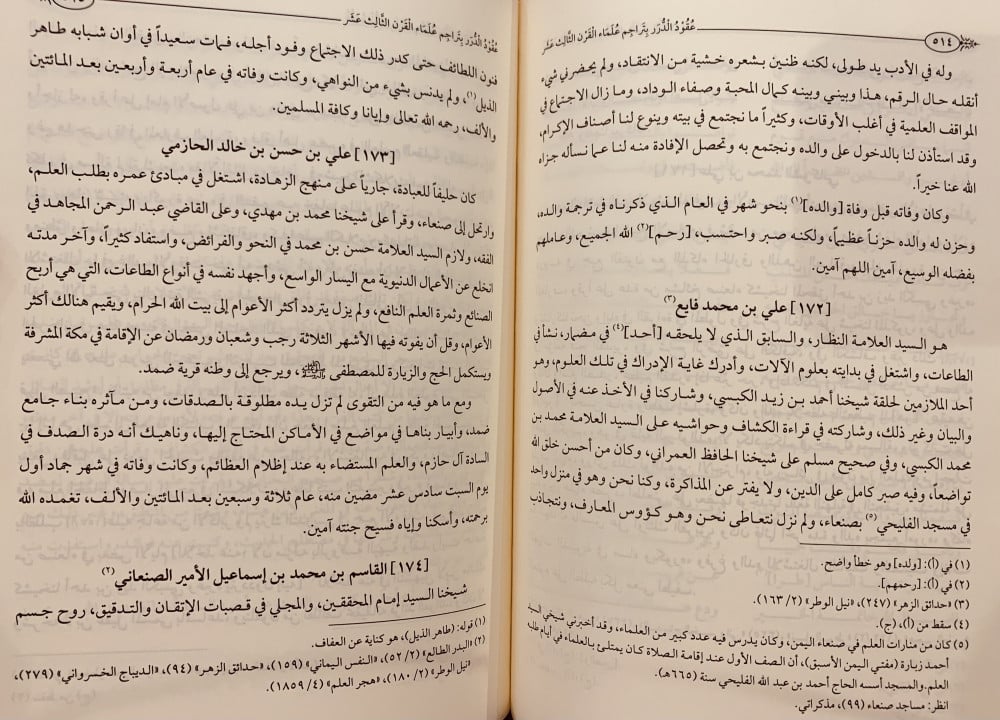 ٥١٤
عُقُودُ الدُّرَر بِتَرَاجِم عُلَمَاء القَرْن الثَّالِث عَشَر
وله في الأدب يد طولى، لكنه ظنين بشعره خشية من الانتقاد، ولم يحضرني شيء
أنقله حال الرقم، هذا وبيني وبينه كمال المحبة وصفاء الوداد، وما زال الاجتماع في
المواقف العلمية في أغلب الأوقات، وكثيراً ما نجتمع في بيته وينوع لنا أصناف الإكرام،
وقد استأذن لنا بالدخول على والده ونجتمع به وتحصل الإفادة منه لنا عما نسأله جزاه
الله عنا خيراً.
وكان وفاته قبل وفاة [والده](١) بنحو شهر في العام الذي ذكرناه في ترجمة والده،
وحزن له والده حزناً عظيماً، ولكنه صبر واحتسب، [رحم](٢) الله الجميع، وعاملهم
بفضله الوسيع، آمين اللهم آمين.
[١٧٢] علي بن محمد فايع(٣)
هو السيد العلامة النظار، والسابق الذي لا يلحقه [أحد](٤) في مضمار، نشأ في
الطاعات، واشتغل في بدايته بعلوم الآلات، وأدرك غاية الإدراك في تلك العلوم، وهو
أحد الملازمين لحلقة شيخنا أحمد بن زيد الكبسي، وشاركنا في الأخذ عنه في الأصول
والبيان وغير ذلك، وشاركته في قراءة الكشاف وحواشيه على السيد العلامة محمد بن
محمد الكبسي، وفي صحيح مسلم على شيخنا الحافظ العمراني، وكان من أحسن خلق الله
تواضعاً، وفيه صبر كامل على الدين، ولا يفتر عن المذاكرة، وكنا نحن وهو في منزل واحد
في مسجد الفليحي(٥) بصنعاء، ولم نزل نتعاطى نحن وهو كؤوس المعارف، ونتجاذب
(١) في (أ): [ولده] وهو خطأ واضح.
(٢) في (أ): [رحمهم].
(٣) «حدائق الزهر» (٢٤٧)، «نيل الوطر» (٢/ ١٦٣).
(٤) سقط من (أ)، (ج).
(٥) كان من منارات العلم في صنعاء اليمن، وكان يدرس فيه عدد كبير من العلماء، وقد أخبرني شيخي السيد
أحمد زبارة (مفتي اليمن الأسبق)، أن الصف الأول عند إقامة الصلاة كان يمتلئ بالعلماء في أيام طلب
العلم. والمسجد أسسه الحاج أحمد بن عبد الله الفليحي سنة (٦٦٥هـ).
انظر: مساجد صنعاء (٩٩)، مذكراتي.
عُقُودُ الدُّرَر بِتَرَاجِم عُلَمَاء القَرْن الثَّالِث عَشَر
فنون اللطائف حتى كدر ذلك الاجتماع وفود أجله، فمات سعيداً في أوان شبابه طاهر
الذيل(١)، ولم يدنس بشيء من النواهي، وكانت وفاته في عام أربعة وأربعين بعد المائتين
والألف، رحمه الله تعالى وإيانا وكافة المسلمين.
[١٧٣] علي بن حسن بن خالد الحازمي
كان حليفاً للعبادة، جارياً على منهج الزهادة، اشتغل في مبادئ عمره بطلب العلم،
وارتحل إلى صنعاء، وقرأ على شيخنا محمد بن مهدي، وعلى القاضي عبد الرحمن المجاهد في
الفقه، ولازم السيد العلامة حسن بن محمد في النحو والفرائض، واستفاد كثيراً، وآخر مدته
انخلع عن الأعمال الدنيوية مع اليسار الواسع، وأجهد نفسه في أنواع الطاعات، التي هي أربح
الصنائع وثمرة العلم النافع، ولم يزل يتردد أكثر الأعوام إلى بيت الله الحرام، ويقيم هنالك أكثر
الأعوام، وقل أن يفوته فيها الأشهر الثلاثة رجب وشعبان ورمضان عن الإقامة في مكة المشرفة
ويستكمل الحج والزيارة للمصطفى ﷺ، ويرجع إلى وطنه قرية ضمد.
ومع ما هو فيه من التقوى لم تزل يده مطلوقة بالصدقات، ومن مآثره بناء جامع
ضمد، وأبيار بناها في مواضع في الأماكن المحتاج إليها، وناهيك أنه درة الصدف في
السادة آل حازم، والعلم المستضاء به عند إظلام العظائم، وكانت وفاته في شهر جماد أول
يوم السبت سادس عشر مضين منه، عام ثلاثة وسبعين بعد المائتين والألف، تغمده الله
برحمته، وأسكنا وإياه فسيح جنته آمين.
[١٧٤] القاسم بن محمد بن إسماعيل الأمير الصنعاني(٢)
شيخنا السيد إمام المحققين، والمجلي في قصبات الإتقان والتدقيق، روح جسم
(١) قوله: (طاهر الذيل)، هو كناية عن العفاف.
(٢) «البدر الطالع» (٢/ ٥٢)، «النفس اليماني» (١٥٩)، «حدائق الزهر» (٩٤)، «الديباج الخسرواني» (٢٧٩)،
«نيل الوطر» (٢/ ١٨٠)، «هجر العلم» (٤/ ١٨٥٩).